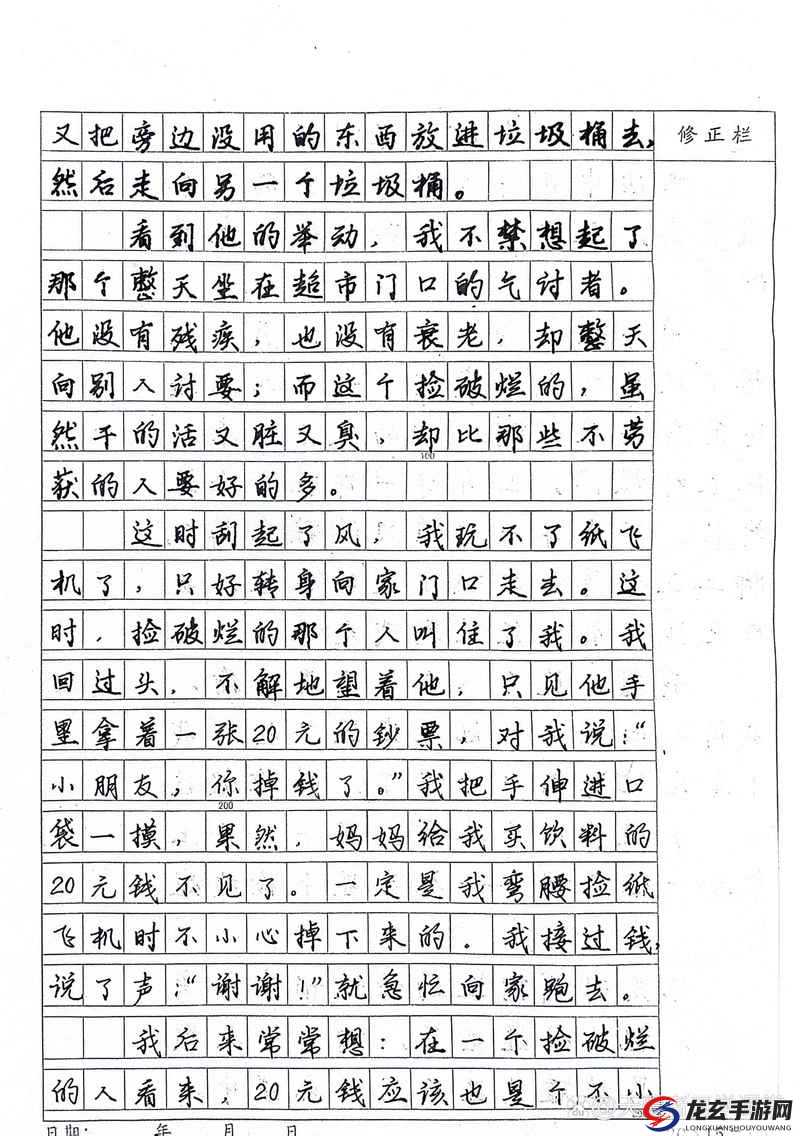 又把旁边没用的东西放进垃圾桶去，
修正栏
然后走向另一个垃圾桶。
看到他的举动，我不禁想起了
那个整天坐在超市门口的气讨者。
他没有残疾，也没有衰老，却整天
向别人讨要；而这个捡破烂的，虽
然干的活又脏又臭，却比那些不劳
160
获的人要好的多。
这时刮起了风，我玩不了纸飞
机了，只好转身向家门口走去。这
时，捡破烂的那个人叫住了我。我
回过头，不解地望着他，只见他手
里拿着一张20元的钞票，对我说：“
小朋友，你掉钱了。”我把手伸进口
200
袋一摸，果然，妈妈给我买饮料的
20元钱不见了。一定是我弯腰捡纸
飞机时不小心掉下来的。我接过钱，
说了声：“谢谢！”就急忙向家跑去。
我后来常常想：在一个捡破烂
的人看来，20元钱应该也是个不小
日期： 年 月 日
龙玄手游网
LONGXUANSHOUYOUWANG